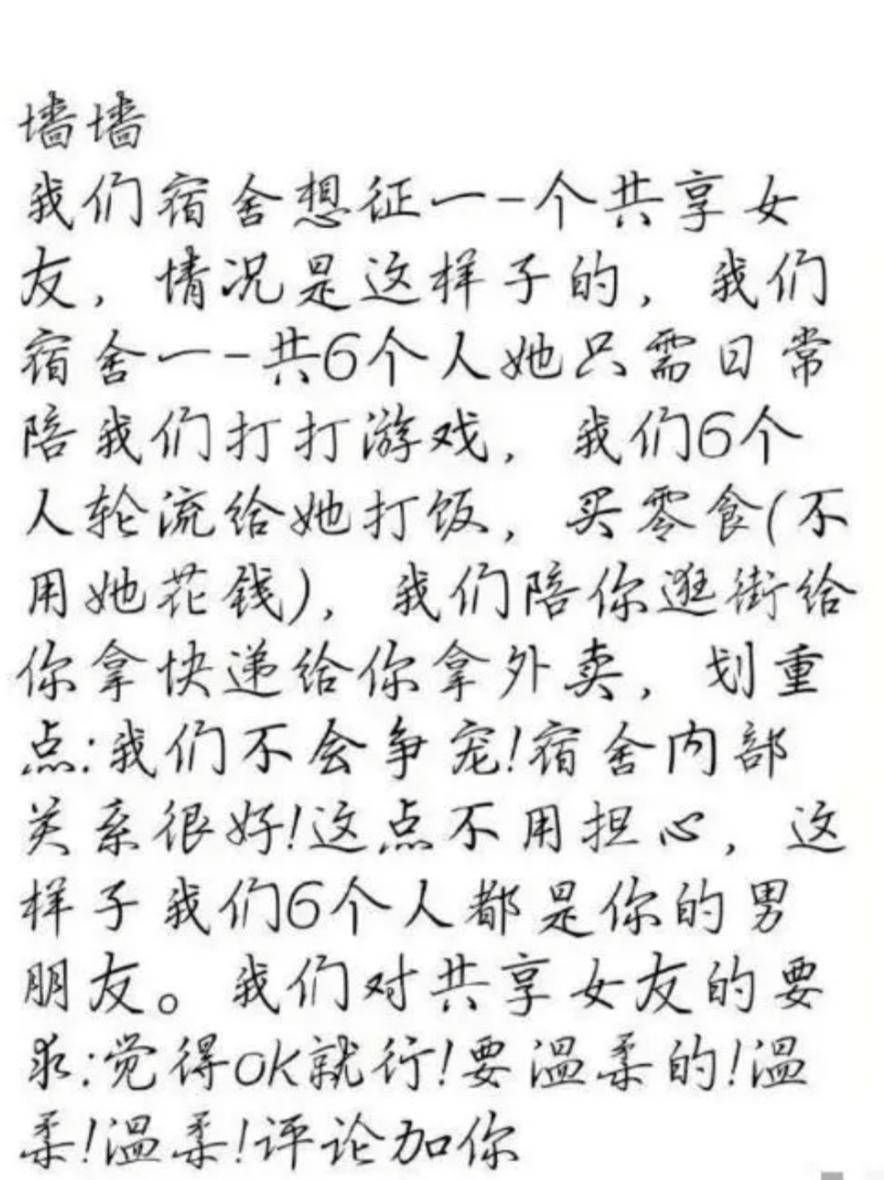 墙墙
我们宿舍想征一-个共享女
友，情况是这样子的，我们
宿舍一-共6个人她只需日常
陪我们打打游戏，我们6个
人轮流给她打饭，买零食(不
用她花钱)，我们陪你逛街给
你拿快递给你拿外卖，划重
点:我们不会争宠!宿舍内部
关系很好!这点不用担心，这
样子我们6个人都是你的男
朋友。我们对共享女友的要
求:觉得ok就行!要温柔的!温
柔!温柔!评论加你